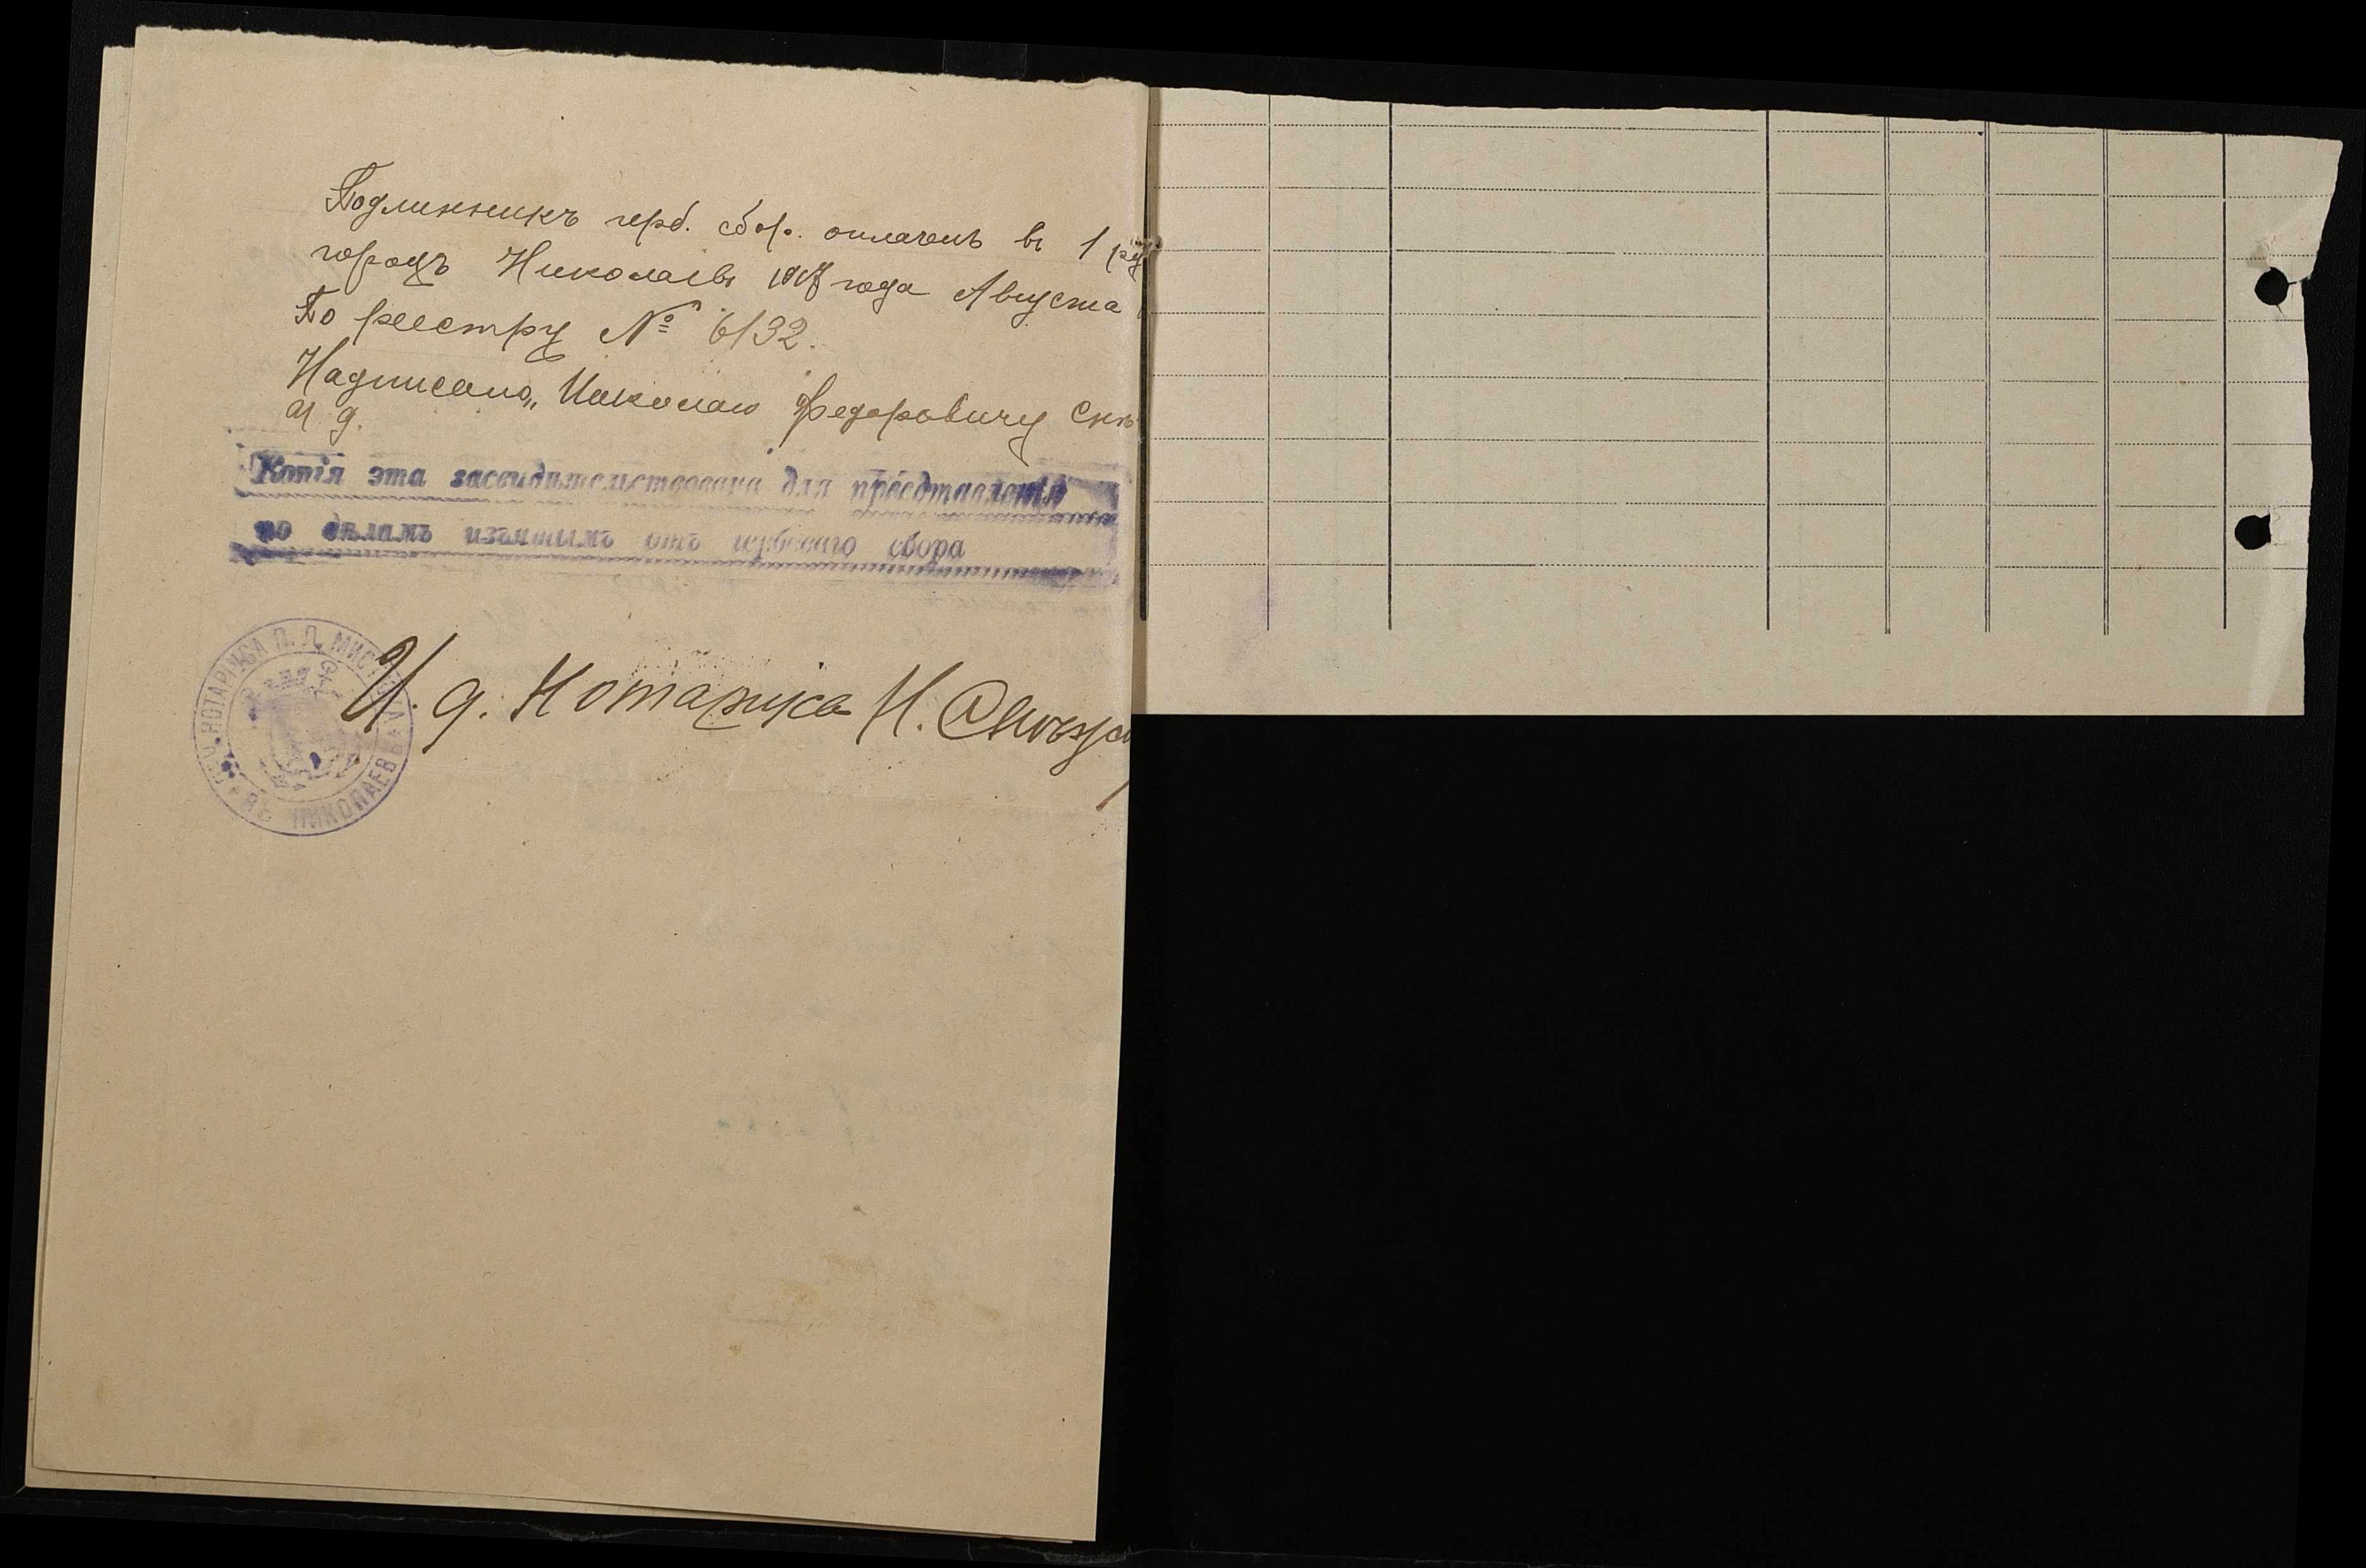 Подлинникъ герб. сбор. оплаченъ въ 1 ру
городъ Николаевъ 1917 года Августа
По реестру № 6132.
Надписано, Николаю Федоровичу Снѣ
И. д.
Копія эта засвидѣтельствована для представленія
по дѣламъ изъятымъ отъ гербоваго сбора
НОТАРІУСА П. Л. МИС
ВЪ НИКОЛАЕВѢ
И. д. Нотаріуса Н.